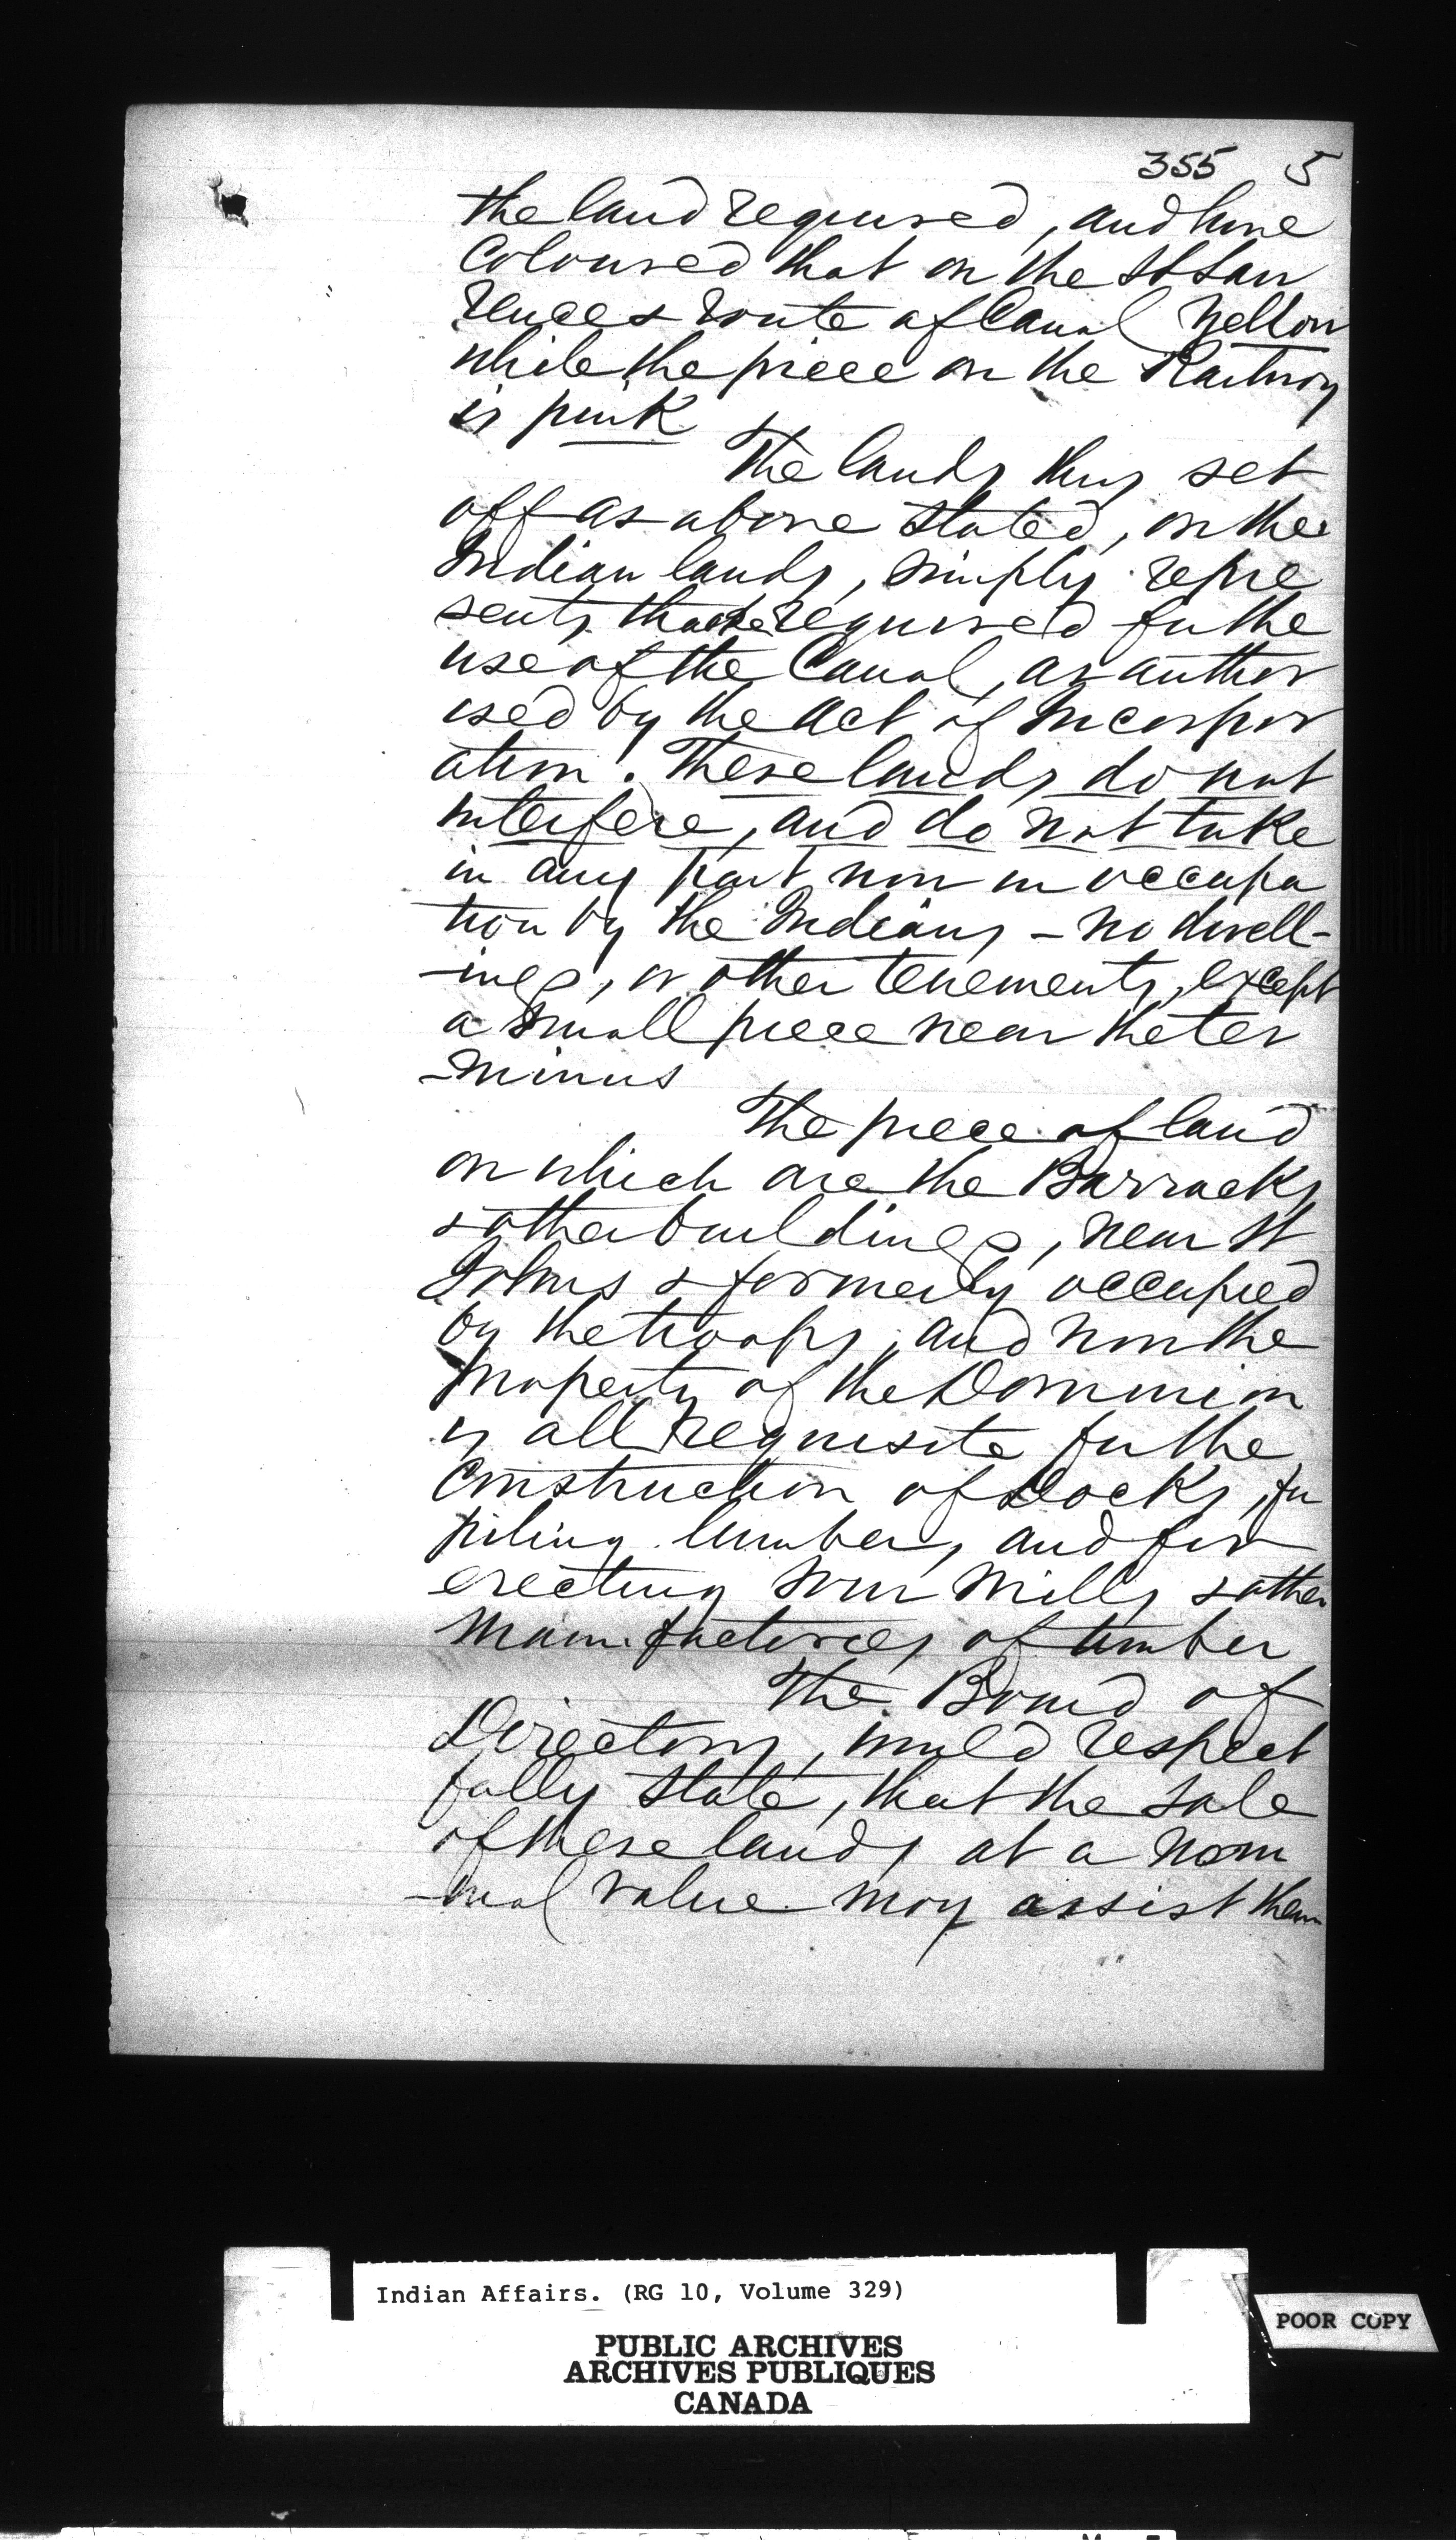 355 5
the land required, and have
Coloured that on the St Law
rences route of Canal Yellow
while the piece on the Railway
is pink
The lands thus set
off as above stated, on the
Indian lands, simply repre
sents those required for the
use of the Canal, as author
ised by the Act of Incorpor
ation. These lands do not
interfere, and do not take
in any part now in occupa
tion by the Indians - no dwell-
-ings, or other tenements, except
a small piece near the ter
-minus
The piece of land
on which are the Barracks
& other buildings, near St
Johns & formerly occupied
by the troops, and now the
property of the Dominion
is all requisite for the
Construction of Docks, for
piling lumber, and for
erecting Saw Mills & other
Manufactories of timber
The Board of
Directors, would respect
fully state, that the sale
of these lands at a nom
-inal value may assist them
Indian Affairs. (RG 10, Volume 329)
PUBLIC ARCHIVES
ARCHIVES PUBLIQUES
CANADA
POOR COPY